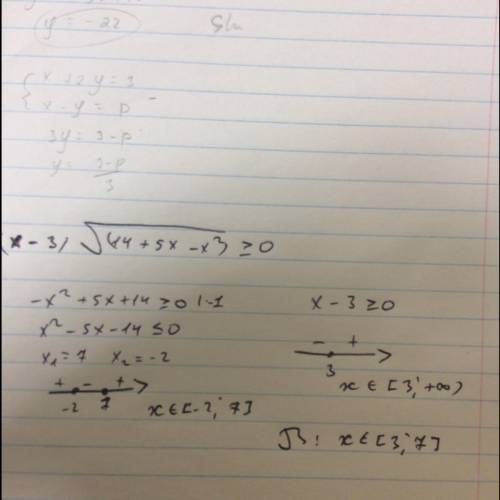 y = -22
{ x + 2y = 3
{ x - y = p
3y = 3 - p
y = 3-p/3
(x - 3) √(14 + 5x - x²) ≥ 0
-x² + 5x + 14 ≥ 0 |·-1
x² - 5x - 14 ≤ 0
x₁ = 7 x₂ = -2
+ - +
-2 7
x ∈ [-2; 7]
x - 3 ≥ 0
- +
3
x ∈ [3; +∞)
: x ∈ [3; 7]